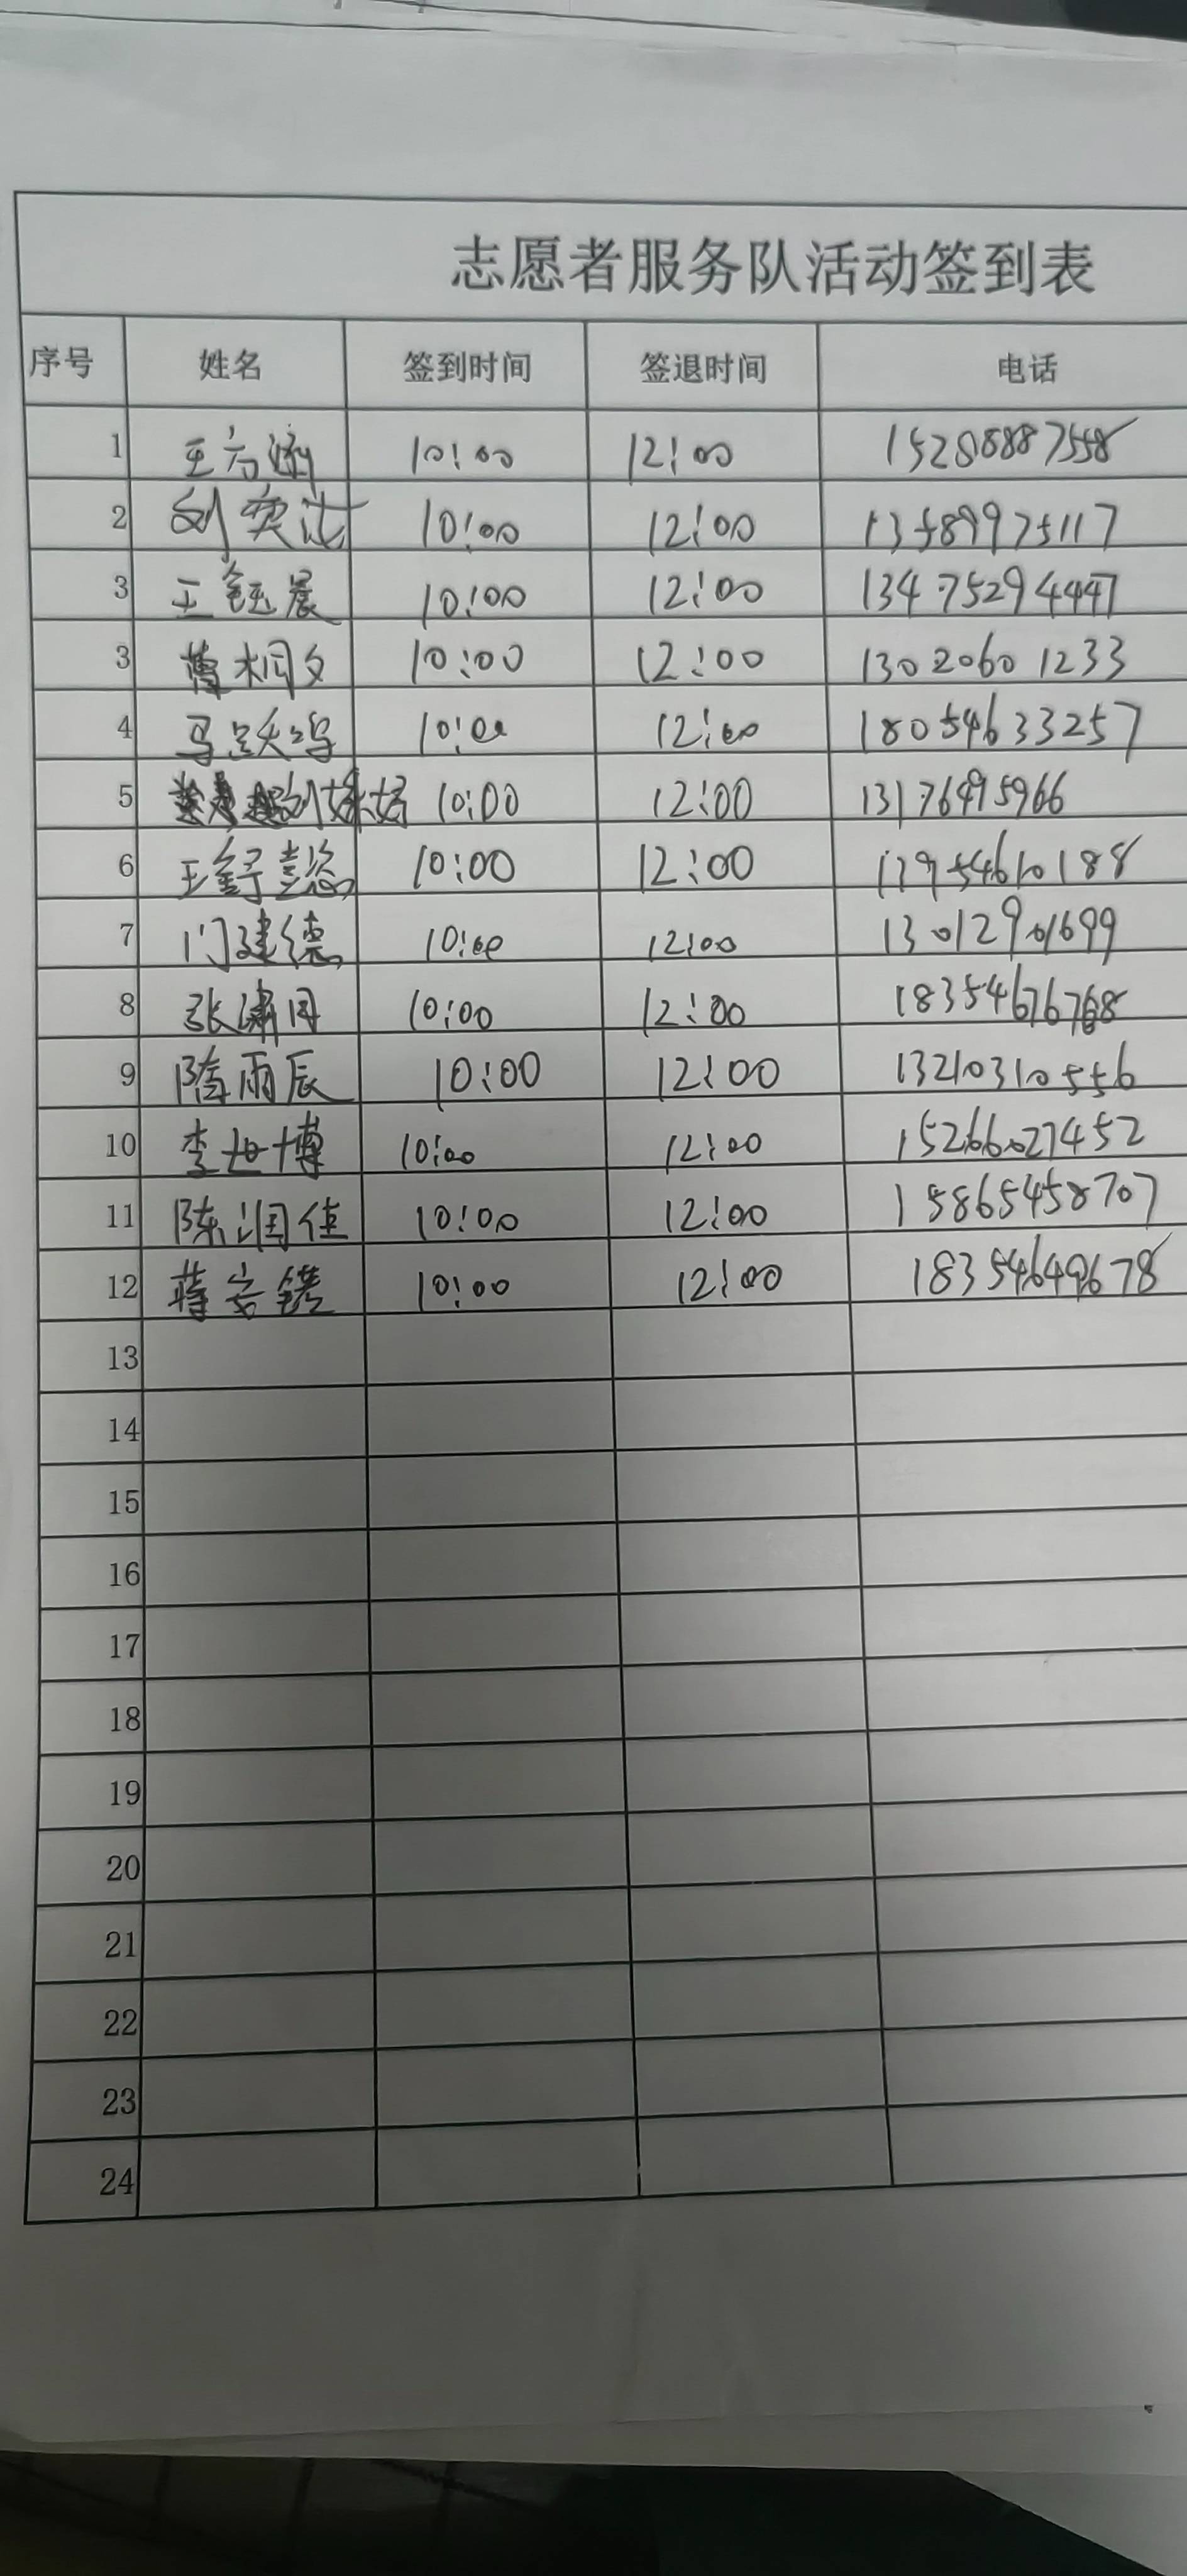 志愿者服务队活动签到表
序号 姓名 签到时间 签退时间 电话
1 10:00 12:00 15288887558
2 刘奕 10:00 12:00 13589975117
3 王钰晨 10:00 12:00 13475294447
3 曹桐文 10:00 12:00 13020601233
4 马跃鸣 10:00 12:00 18054633257
5 10:00 12:00 13176495966
6 王舒 10:00 12:00
7 门建德 10:00 12:00 13012901699
8 张潇丹 10:00 12:00 18354676768
9 隋雨辰 10:00 12:00 13210310556
10 李世博 10:00 12:00 15266027452
11 陈润佳 10:00 12:00 15865458707
12 蒋 10:00 12:00 18354649678
13
14
15
16
17
18
19
20
21
22
23
24